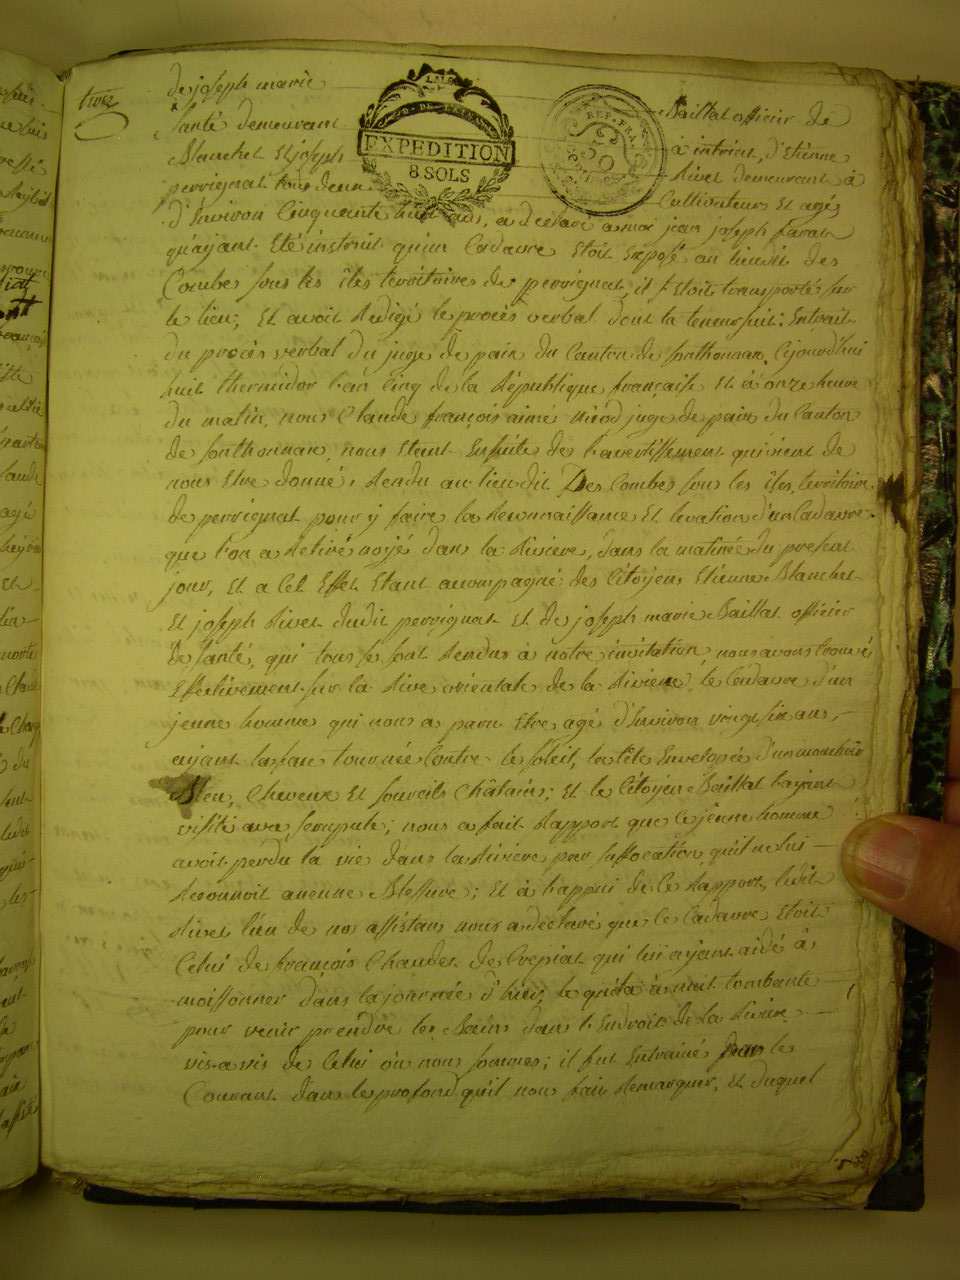 trois
de joseph marie Baillat officier de
santé demeurant à intriat, d'Etienne
Blanchet et joseph Rivet demeurant à
perrignat tous deux Cultivateurs et agés
EXPEDITION
8 SOLS
REP. FRA.
50
d'Environ Cinquante huit ans, a declaré a moi jean joseph
qu'ajant Eté instruit qu'un Cadavre Etoit Exposé au lieudit des
Combes sous les îles territoires de perrignat, il s'Etoit transporté sur
le lieu; et avoit Redigé le procès verbal dont la teneur suit: Extrait
du procès verbal du juge de paix du Canton de sonthonnax. Cejourd'hui
huit thermidor l'an Cinq de la République française et à onze heure
du matin, nous Claude françois aimé Nicod juge de paix du Canton
de sonthonnax, nous Etant Ensuite de l'avertissement qui vient de
nous Etre donné, Rendu au lieu dit Des Combes sous les îles, territoire
de perrignat pour y faire la Reconnaissance et levation d'un Cadavre
que l'on a Retiré nojé dans la Riviere, dans la matinée du present
jour, et a Cet Effet Etant accompagné des Citoyens Etienne Blanchet
et joseph Rivet dudit perrignat et de joseph marie Baillat officier
de santé, qui tous se sont Rendus à notre invitation, nous avons trouvé
Effectivement sur la Rive orientale de la Riviere, le Cadavre d'un
jeune homme qui nous a paru Etre agé d'Environ vingt six ans,
ajant la face tournée Contre le soleil, la tête Envelopée d'un mouchoir
Bleu, Cheveux et sourcils Châtains; et le Citoyen Baillat l'ajant
visité avec scrupule; nous a fait Rapport que le jeune homme
avoit perdu la vie dans la Riviere par suffocation, qu'il ne lui
Reconnoit aucune Blessure; et à l'appui de Ce Rapport, ledit
Rivet l'un de nos assistans nous a declaré que le Cadavre Etoit
Celui de françois Chaudet de Crepiat qui lui ajant aidé à
moissonner dans la journée d'hier, le quita à nuit tombante
pour venir prendre les Bains dans l'Endroit de la Riviere
vis-a-vis de Celui où nous sommes; il fut Entrainé par le
Courant dans le profond qu'il nous fait Remarquer, et duquel